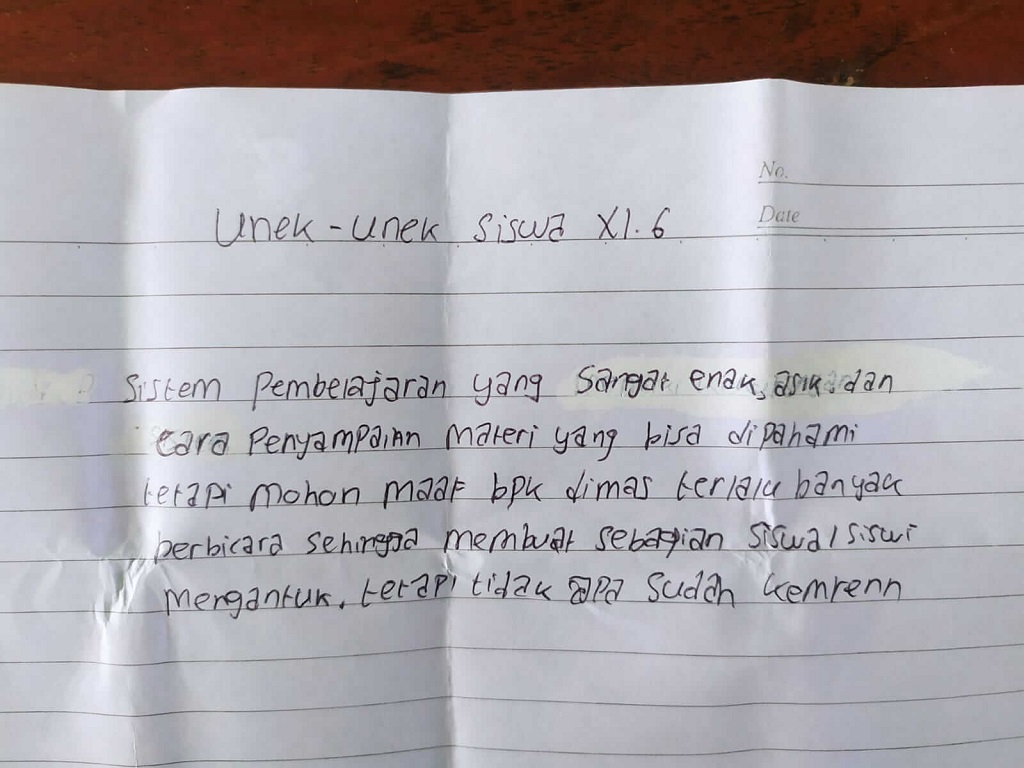 No.
Date
Unek-Unek Siswa XI.6
Sistem Pembelajaran yang Sangat enak, asik dan
cara Penyampaian Materi yang bisa dipahami
tetapi Mohon Maaf bpk dimas terlalu banyak
berbicara sehingga membuat sebagian siswa/siswi
Mengantuk. tetapi tidak apa Sudah kemrenn